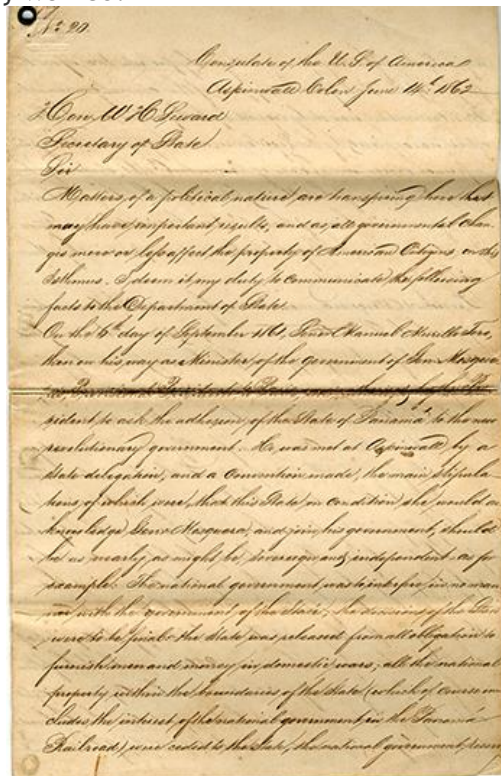 No 20.
Consulate of the U.S. of America
Aspinwall Colon June 14th 1862
Hon. W H Seward
Secretary of State
Sir
Matters of a political nature are transpiring here that
may have important results, and as all governmental chan-
ges more or less affect the property of American Citizens on this
Isthmus. I deem it my duty to communicate the following
facts to the Department of State.
On the 6th day of September 1861, Senor Manuel Murillo Toro,
then on his way as Minister of the Government of Gen Mosquera
as Provisional President to Paris,
sident to ask the adhesion of the State of Panamá to the new
revolutionary government. He was met at Aspinwall by a
State delegation, and a Convention made, the main stipula
tions of which were, that this State on condition she would a
knowledge Genr Mosquera, and join his government, should
be as nearly as might be, sovereign and independent as for
example. The national government was to interfere in no man
ner with the government of the State; the decisions of the
were to be final - the State was released from all obligation to
furnish men and money in domestic wars; all the national
property within the boundaries of the State (which of course in
cludes the interest of the national government in the Panamá
Railroad) were ceded to the State, the national government